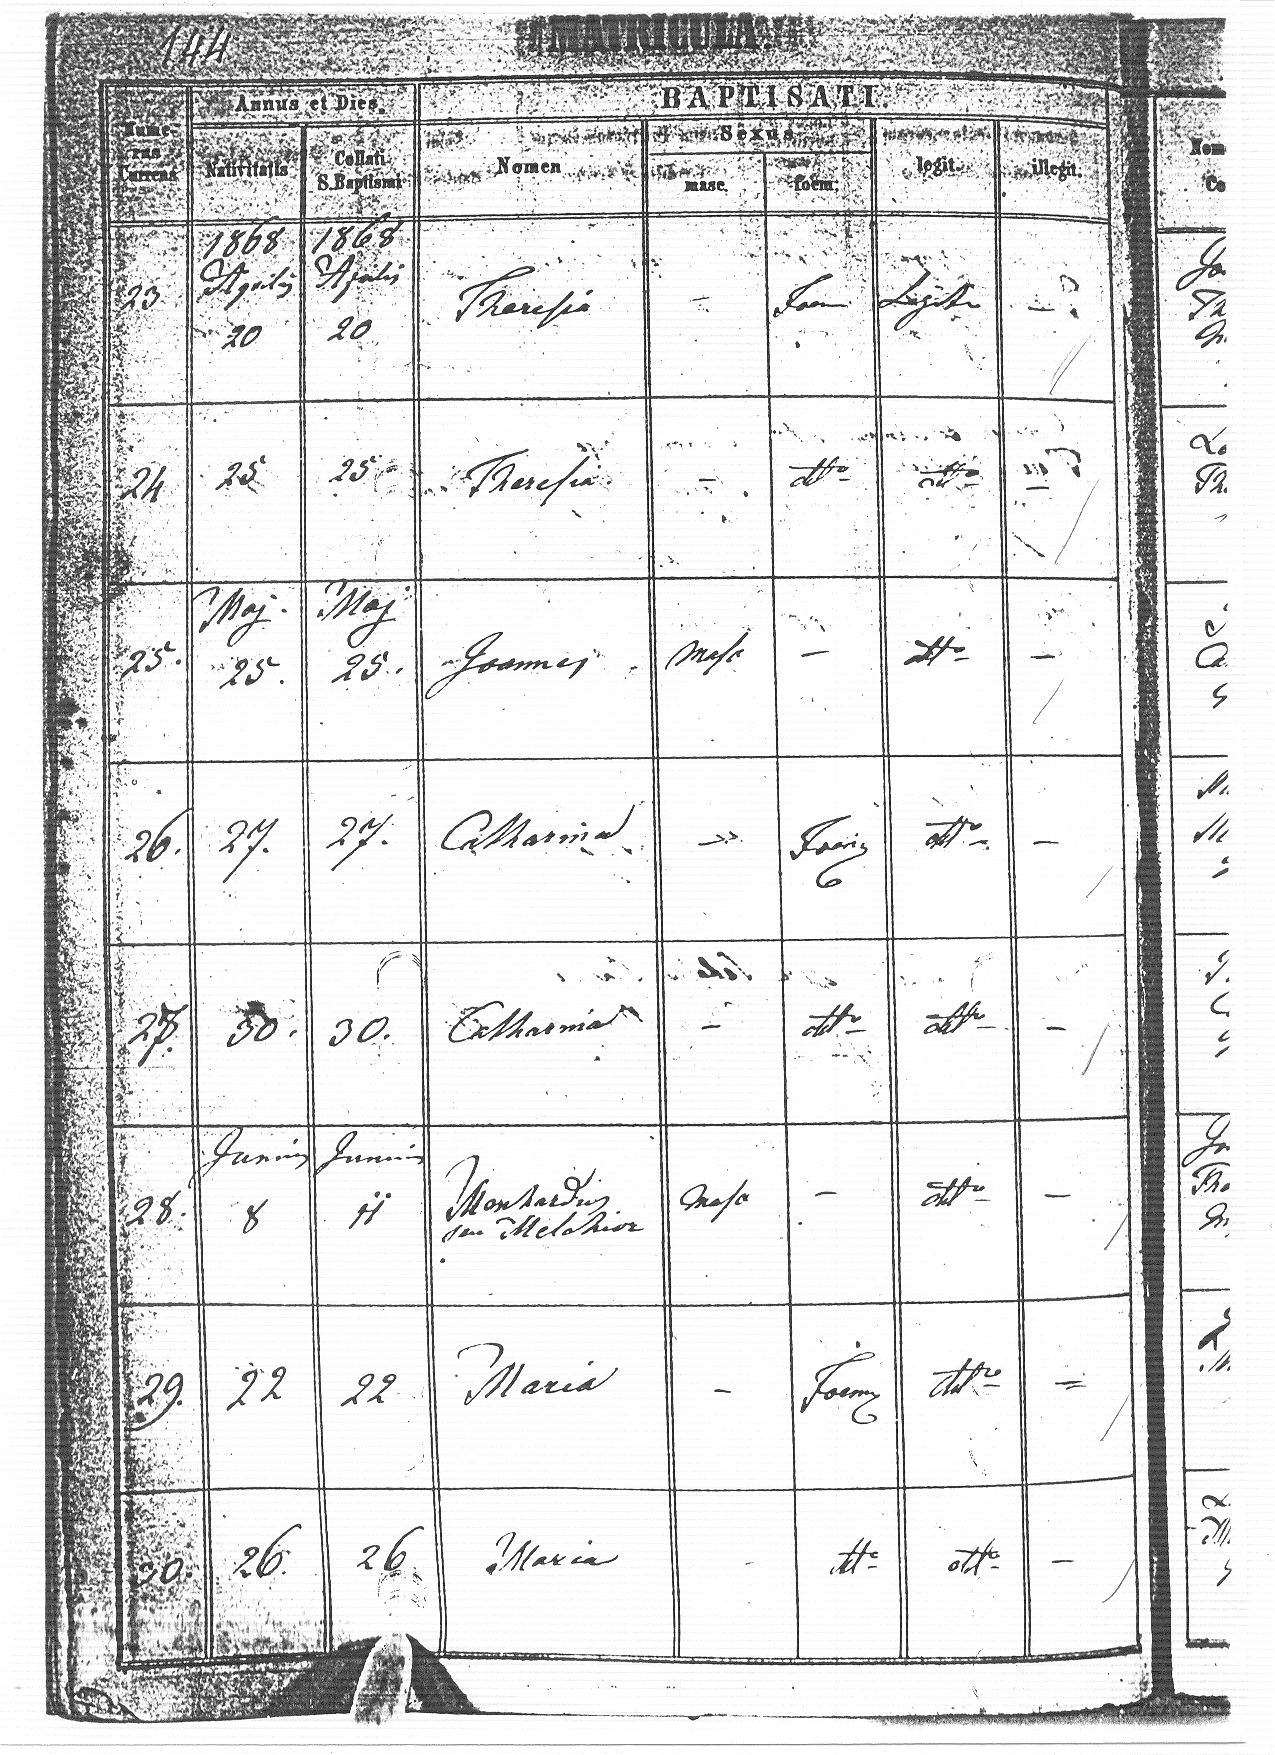 144
MATRICULA
Nume-
rus
Currens
Annus et Dies.
Nativitatis
Collati
S. Baptismi
BAPTISATI.
Nomen
Sexus
masc.
foem.
legit.
illegit.
Nom
Co
1868 1868
Aprilis Aprilis
23 20 20 Theresia - Foem Legitt -
24 25 25 Theresia - dtto dtto
Maj. Maj
25. 25. 25. Joannes Masc - dtto -
26. 27. 27. Catharina - dtto -
27. 30. 30. Catharina - dtto dtto -
Junius Junius
28. 8 11 Masc - dtto -
seu Melchior
29. 22 22 Maria - dtto =
30. 26. 26 Maria - dtto dtto -